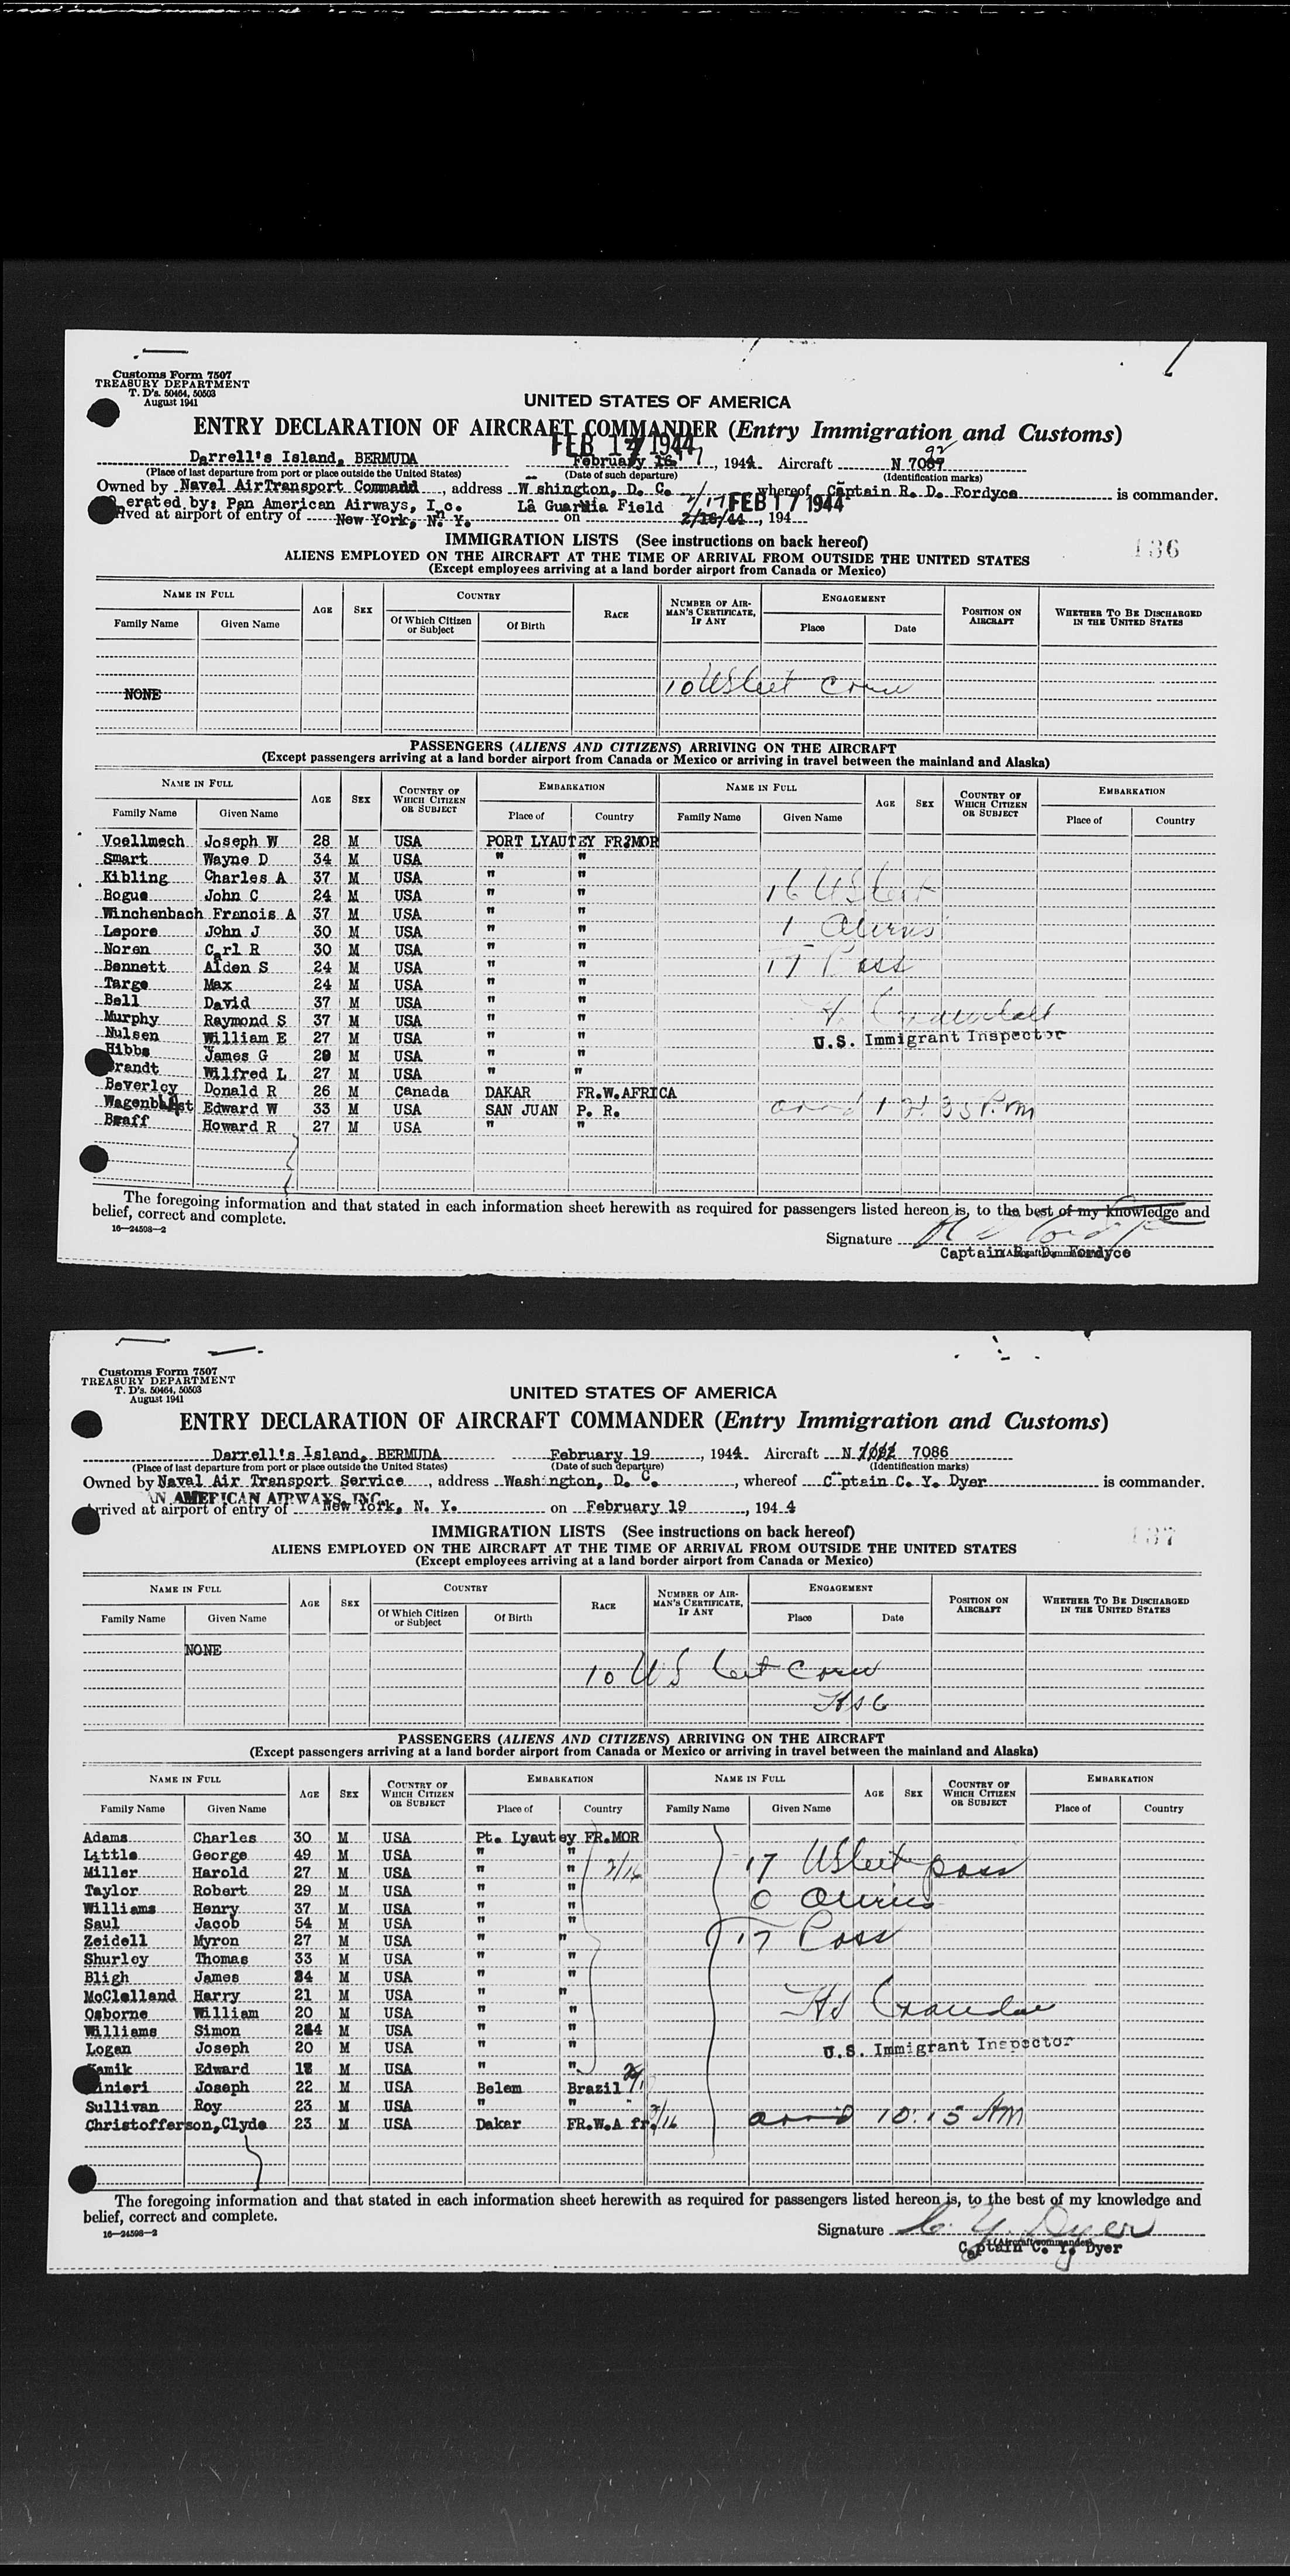 Customs Form 7507
TREASURY DEPARTMENT
T. D's. 50464, 50503
August 1941
UNITED STATES OF AMERICA
ENTRY DECLARATION OF AIRCRAFT COMMANDER (Entry Immigration and Customs)
FEB 17 1944
Darrell's Island, BERMUDA February 16 17, 1944 Aircraft N 7087 92
(Place of last departure from port or place outside the United States) (Date of such departure) (Identification marks)
Owned by Naval AirTransport Command, address Washington, D. C. whereof Captain R. D. Fordyce is commander.
erated by: Pan American Airways, Inc. La Guardia Field 2/17 FEB 17 1944
ived at airport of entry of New York, N. Y. on 2/16/44, 194
IMMIGRATION LISTS (See instructions on back hereof)
136
ALIENS EMPLOYED ON THE AIRCRAFT AT THE TIME OF ARRIVAL FROM OUTSIDE THE UNITED STATES
(Except employees arriving at a land border airport from Canada or Mexico)
NAME IN FULL AGE SEX COUNTRY RACE NUMBER OF AIRMAN'S CERTIFICATE, IF ANY ENGAGEMENT POSITION ON AIRCRAFT WHETHER TO BE DISCHARGED IN THE UNITED STATES
Family Name Given Name Of Which Citizen or Subject Of Birth Place Date
10 US cit crew
NONE
PASSENGERS (ALIENS AND CITIZENS) ARRIVING ON THE AIRCRAFT
(Except passengers arriving at a land border airport from Canada or Mexico or arriving in travel between the mainland and Alaska)
NAME IN FULL AGE SEX COUNTRY OF WHICH CITIZEN OR SUBJECT EMBARKATION NAME IN FULL AGE SEX COUNTRY OF WHICH CITIZEN OR SUBJECT EMBARKATION
Family Name Given Name Place of Country Family Name Given Name Place of Country
Voellmech Joseph W 28 M USA PORT LYAUTEY FR.MOR
Smart Wayne D 34 M USA " "
Kibling Charles A 37 M USA " "
Bogue John C 24 M USA " " 16 US cit
Winchenbach Francis A 37 M USA " "
Lepore John J 30 M USA " " 1 Aliens
Noren Carl R 30 M USA " "
Bennett Alden S 24 M USA " " 17 Pass
Targe Max 24 M USA " "
Bell David 37 M USA " "
Murphy Raymond S 37 M USA " "
Nulsen William E 27 M USA " " U.S. Immigrant Inspector
Hibbs James G 29 M USA " "
randt Wilfred L 27 M USA " "
Beverley Donald R 26 M Canada DAKAR FR.W.AFRICA
Edward W 33 M USA SAN JUAN P. R. 35 P.m
Howard R 27 M USA " "
The foregoing information and that stated in each information sheet herewith as required for passengers listed hereon is, to the best of my knowledge and
belief, correct and complete.
16—24598—2
Signature R D Fordyce
(Aircraft commander)
Captain R. D. Fordyce
Customs Form 7507
TREASURY DEPARTMENT
T. D's. 50464, 50503
August 1941
UNITED STATES OF AMERICA
ENTRY DECLARATION OF AIRCRAFT COMMANDER (Entry Immigration and Customs)
Darrell's Island, BERMUDA February 19, 1944 Aircraft N 7086
(Place of last departure from port or place outside the United States) (Date of such departure) (Identification marks)
Owned by Naval Air Transport Service, address Washington, D. C., whereof Captain C. Y. Dyer is commander.
AN AMERICAN AIRWAYS, INC.
rrived at airport of entry of New York, N. Y. on February 19, 1944
IMMIGRATION LISTS (See instructions on back hereof)
137
ALIENS EMPLOYED ON THE AIRCRAFT AT THE TIME OF ARRIVAL FROM OUTSIDE THE UNITED STATES
(Except employees arriving at a land border airport from Canada or Mexico)
NAME IN FULL AGE SEX COUNTRY RACE NUMBER OF AIRMAN'S CERTIFICATE, IF ANY ENGAGEMENT POSITION ON AIRCRAFT WHETHER TO BE DISCHARGED IN THE UNITED STATES
Family Name Given Name Of Which Citizen or Subject Of Birth Place Date
NONE
10 US cit crew
HSC
PASSENGERS (ALIENS AND CITIZENS) ARRIVING ON THE AIRCRAFT
(Except passengers arriving at a land border airport from Canada or Mexico or arriving in travel between the mainland and Alaska)
NAME IN FULL AGE SEX COUNTRY OF WHICH CITIZEN OR SUBJECT EMBARKATION NAME IN FULL AGE SEX COUNTRY OF WHICH CITIZEN OR SUBJECT EMBARKATION
Family Name Given Name Place of Country Family Name Given Name Place of Country
Adams Charles 30 M USA Pt. Lyautey FR.MOR
Little George 49 M USA " "
Miller Harold 27 M USA " " 2/16 17 US cit pass
Taylor Robert 29 M USA " "
Williams Henry 37 M USA " " 0 Aliens
Saul Jacob 54 M USA " "
Zeidell Myron 27 M USA " " 17 Pass
Shurley Thomas 33 M USA " "
Bligh James 34 M USA " "
McClelland Harry 21 M USA " "
Osborne William 20 M USA " "
Williams Simon 24 M USA " "
Logan Joseph 20 M USA " " U.S. Immigrant Inspector
amik Edward 18 M USA " "
inieri Joseph 22 M USA Belem Brazil
Sullivan Roy 23 M USA " "
Christofferson, Clyde 23 M USA Dakar FR.W.A fr. 2/16 arrd 10:15 AM
The foregoing information and that stated in each information sheet herewith as required for passengers listed hereon is, to the best of my knowledge and
belief, correct and complete.
16—24598—2
Signature C. Y. Dyer
(Aircraft commander)
Captain C. Y. Dyer